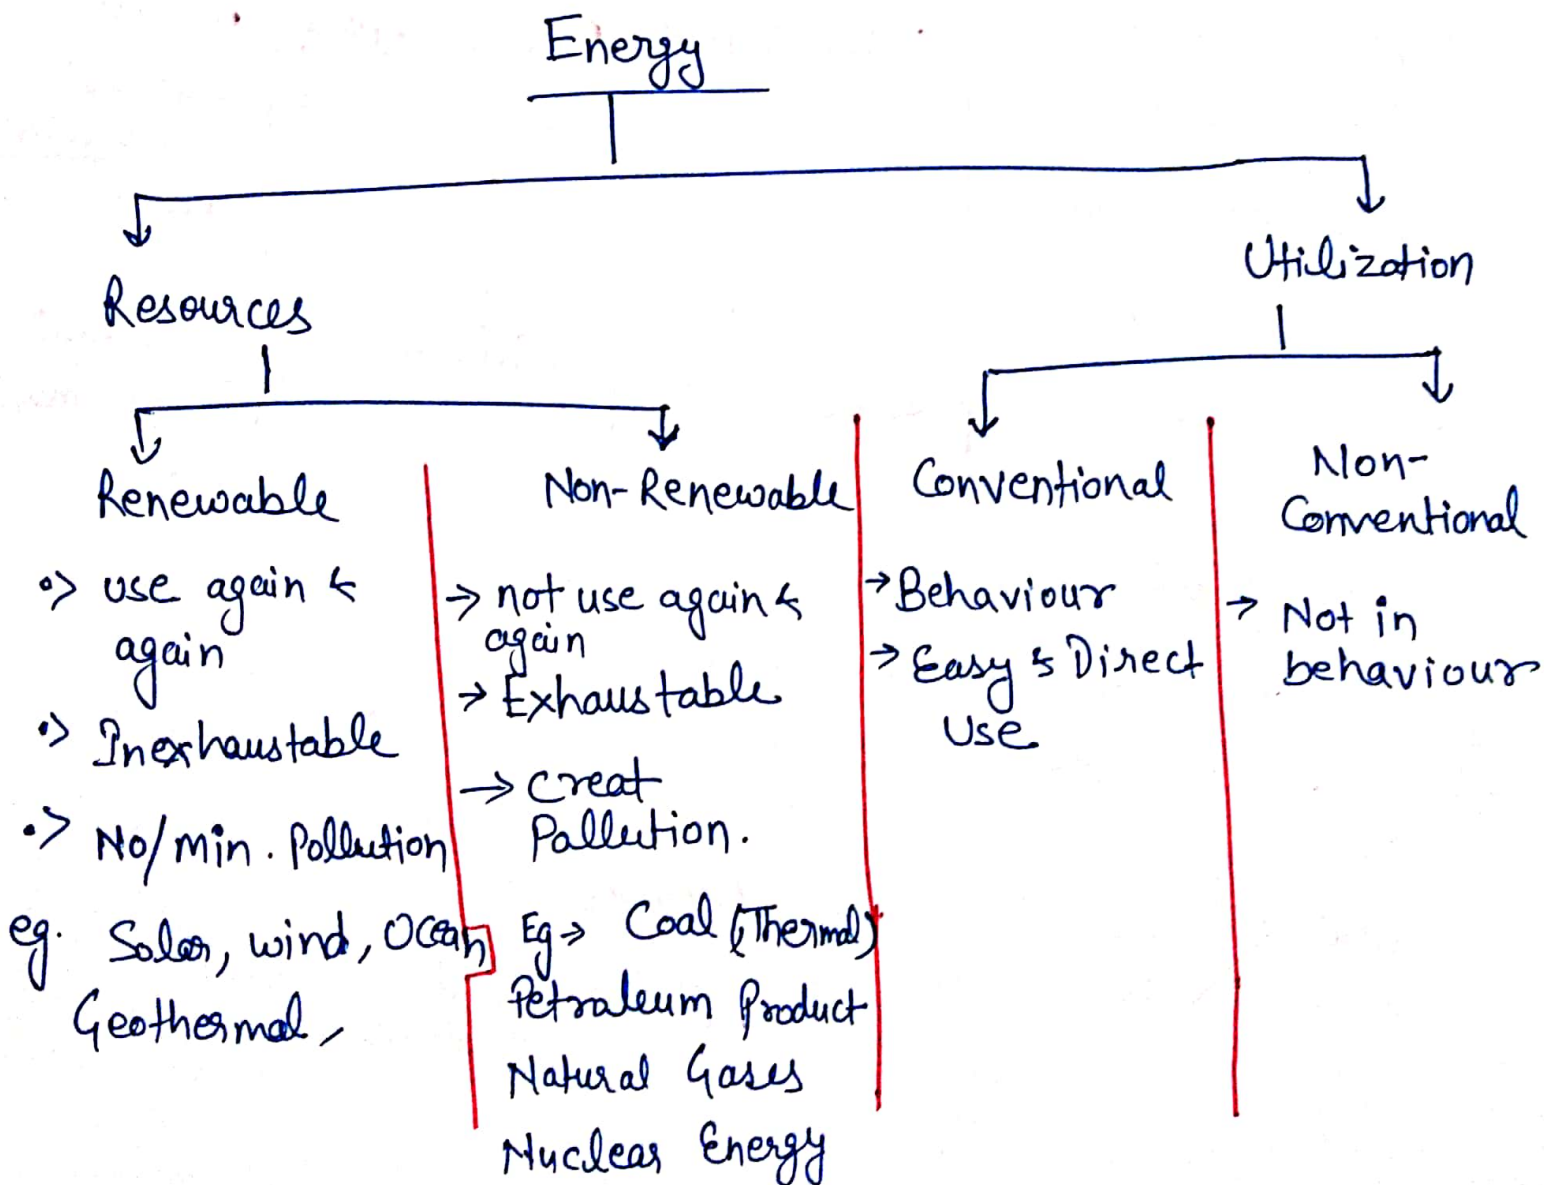 Energy
Resources
Utilization
Renewable
•> use again &
again
•> Inexhaustable
•> No/min. Pollution
eg. Solar, wind, Ocean
Geothermal,
Non-Renewable
→ not use again &
again
→ Exhaustable
→ Creat
Pallution.
Eg→ Coal (Thermal)
Petraleum Product
Natural Gases
Nuclear Energy
Conventional
→ Behaviour
→ Easy & Direct
Use
Non-
Conventional
→ Not in
behaviour